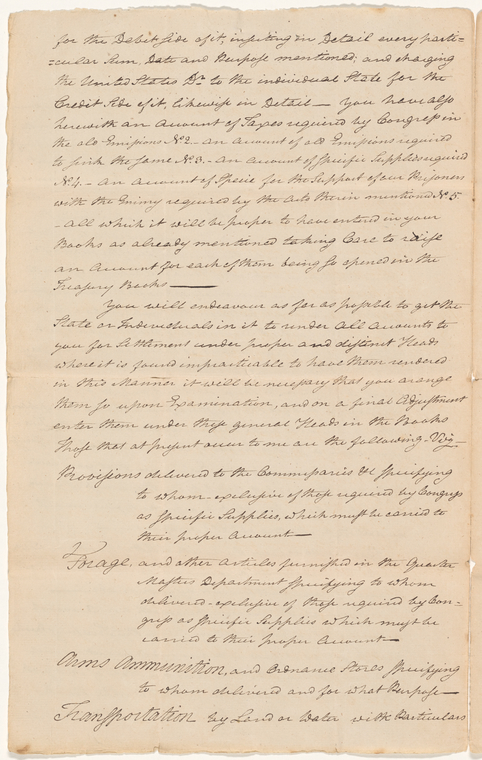 for the Debit Side of it, inserting in Detail every parti=
=cular Sum, Date and Purpose mentioned; and charging
the United States Dr. to the individual State for the
Credit Side of it, likewise in Detail — You have also
herewith an Account of Taxes required by Congress in
the old Emissions No. 2 — an account of old Emissions required
to sink the same No. 3. — an account of Specific Supplies required
No. 4. — an account of Specie for the Support of our Prisoners
with the Enemy required by the Acts therein mentioned No. 5
— all which it will be proper to have entered in your
Books as already mentioned taking Care to raise
an Account for each of them being so opened in the
Treasury Books —
You will endeavour as far as possible to get the
State or Individuals in it to render all accounts to
you for Settlement under proper and distinct Heads
where it is found impracticable to have them rendered
in this Manner it will be necessary that you arange
them so upon Examination, and on a final Adjustment
enter them under these general Heads in the Books
Those that at present occur to me are the following. Viz.—
Provisions delivered to the Commissaries &c Specifying
to whom - exclusive of those required by Congress
as Specific Supplies, which must be carried to
their proper Account —
Forage. and other articles furnished in the Quarter
Masters Department Specifying to whom
delivered - exclusive of these required by Con-
gress as Specific Supplies which must be
carried to their proper Account —
Arms Ammunition, and Ordnance Stores Specifying
to whom delivered and for what Purpose —
Transportation by Land or Water with Particulars